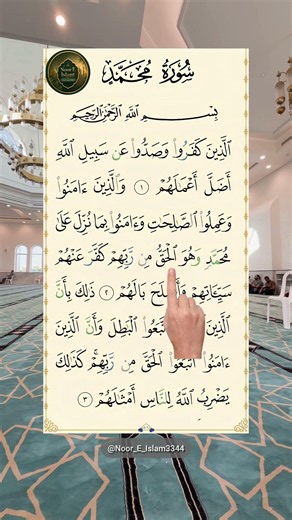 Noor E Islam
سُورَةُ مُحَمَّدٍ
بِسْمِ اللَّهِ الرَّحْمَٰنِ الرَّحِيمِ
الَّذِينَ كَفَرُوا وَصَدُّوا عَن سَبِيلِ اللَّهِ
أَضَلَّ أَعْمَٰلَهُمْ ١ وَالَّذِينَ ءَامَنُوا
وَعَمِلُوا الصَّٰلِحَٰتِ وَءَامَنُوا بِمَا نُزِّلَ عَلَىٰ
مُحَمَّدٍ وَهُوَ الْحَقُّ مِن رَّبِّهِمْ كَفَّرَ عَنْهُمْ
سَيِّـَٔاتِهِمْ وَأَصْلَحَ بَالَهُمْ ٢ ذَٰلِكَ بِأَنَّ
الَّذِينَ اتَّبَعُوا الْبَٰطِلَ وَأَنَّ الَّذِينَ
ءَامَنُوا اتَّبَعُوا الْحَقَّ مِن رَّبِّهِمْ ۚ كَذَٰلِكَ
يَضْرِبُ اللَّهُ لِلنَّاسِ أَمْثَٰلَهُمْ ٣
@Noor_E_Islam3344